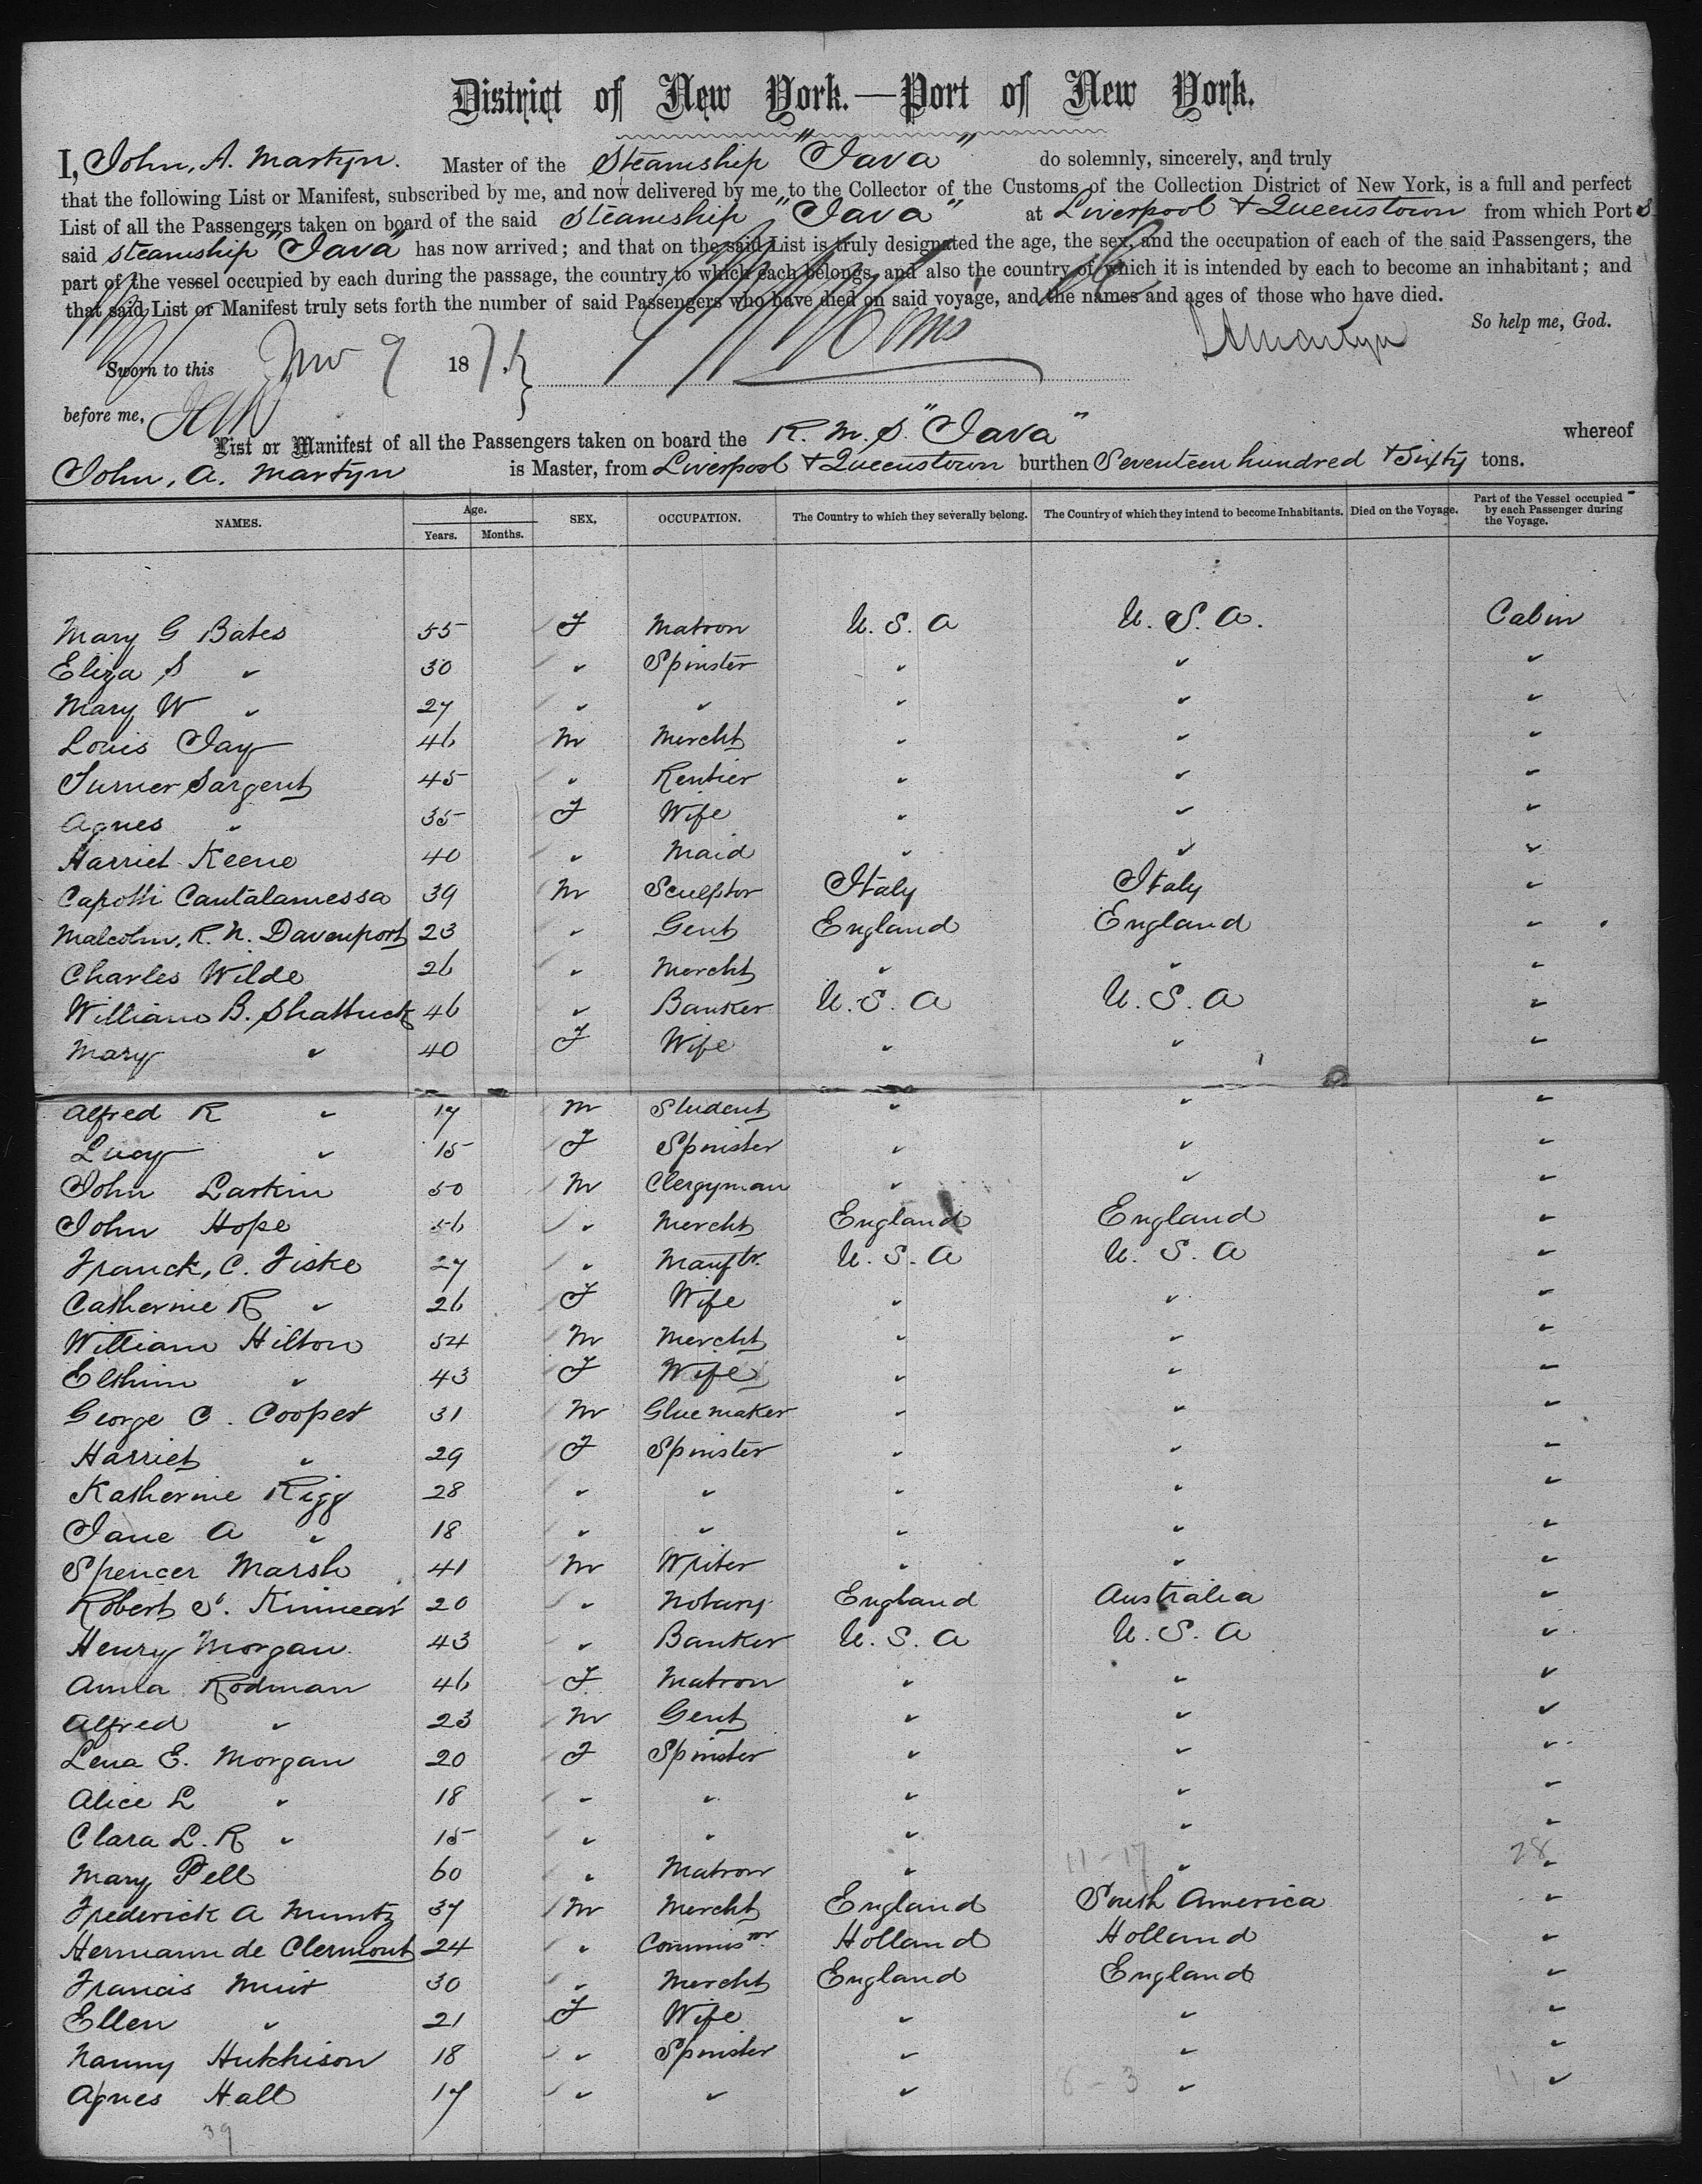 District of New York.—Port of New York.
I, John, A. Martyn. Master of the Steamship "Java" do solemnly, sincerely, and truly
that the following List or Manifest, subscribed by me, and now delivered by me to the Collector of the Customs of the Collection District of New York, is a full and perfect
List of all the Passengers taken on board of the said Steamship "Java" at Liverpool & Queenstown from which Port s
said steamship "Java" has now arrived; and that on the said List is truly designated the age, the sex, and the occupation of each of the said Passengers, the
part of the vessel occupied by each during the passage, the country to which each belongs, and also the country of which it is intended by each to become an inhabitant; and
that said List or Manifest truly sets forth the number of said Passengers who have died on said voyage, and the names and ages of those who have died.
So help me, God.
JAMartyn
Sworn to this 9 187
before me,
List or Manifest of all the Passengers taken on board the R. M. S. "Java" whereof
John, A. Martyn is Master, from Liverpool & Queenstown burthen Seventeen hundred & Sixty tons.
NAMES. Age. Years. Months. SEX, OCCUPATION. The Country to which they severally belong. The Country of which they intend to become Inhabitants. Died on the Voyage. Part of the Vessel occupied by each Passenger during the Voyage.
Mary G Bates 55 F Matron U. S. A U. S. A. Cabin
Eliza S " 30 " Spinster " " "
Mary W " 27 " " " " "
Louis Jay 46 M Mercht " " "
Turner Sargent 45 " Rentier " " "
Agnes " 35 F Wife " " "
Harriet Keene 40 " Maid " " "
Capotti Cantalamessa 39 M Sculptor Italy Italy "
Malcolm, R. N. Davenport 23 " Gent England England "
Charles Wilde 26 " Mercht " " "
William B. Shattuck 46 " Banker U. S. A U. S. A "
Mary " 40 F Wife " " "
Alfred R " 17 M Student " " "
Lucy " 15 F Spinster " " "
John Larkin 50 M Clergyman " " "
John Hope 56 " Mercht England England "
Franck, C. Fiske 27 " Manftr. U. S. A U. S. A "
Catherine R " 26 F Wife " " "
William Hilton 54 M Mercht " " "
" 43 F Wife " " "
George C. Cooper 31 M Glue maker " " "
Harriet " 29 F Spinster " " "
Katherine Rigg 28 " " " " "
Jane A " 18 " " " " "
Spencer Marsh 41 M Writer " " "
Robert S. Kinnear 20 " Notary England Australia "
Henry Morgan 43 " Banker U. S. A U. S. A "
Anna Rodman 46 F Matron " " "
Alfred " 23 M Gent " " "
Lena E. Morgan 20 F Spinster " " "
Alice L " 18 " " " " "
Clara L. R " 15 " " " " "
Mary Pell 60 " Matron " 11-17 " 28 "
Frederick A Muntz 37 M Mercht England South America "
Hermann de Clermont 24 " Holland Holland "
Francis Muir 30 " Mercht England England "
Ellen " 21 F Wife " " "
Nanny Hutchison 18 " Spinster " " "
Agnes Hall 17 " " " " "
39